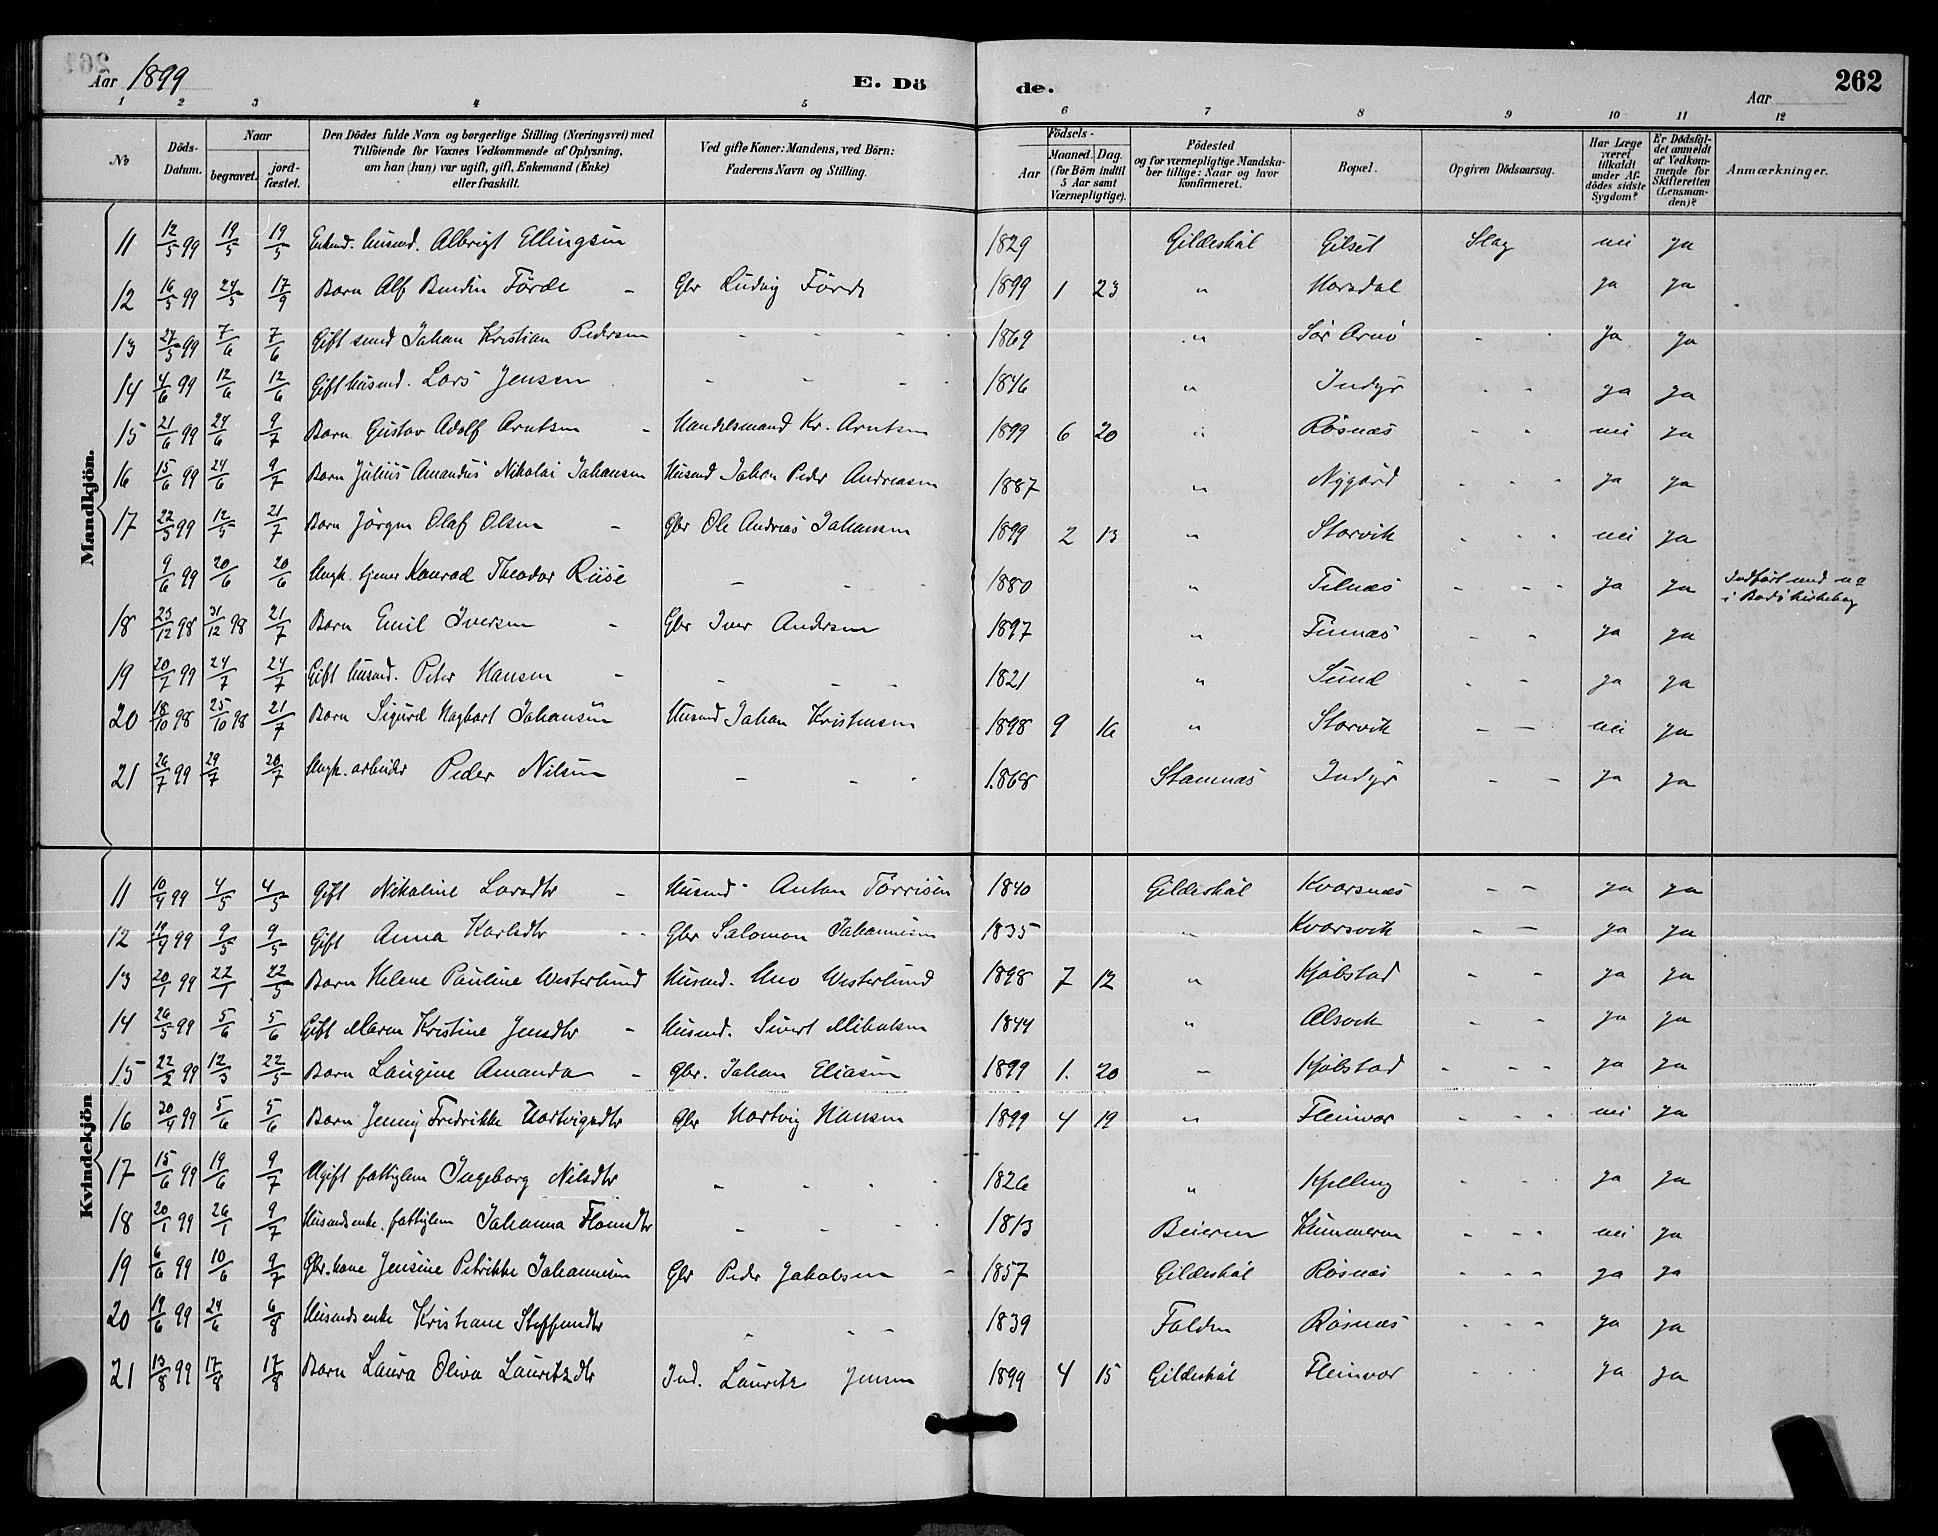 Aar 1899
E. Dö
de.
Aar
262
1 2 3 4 5 6 7 8 9 10 11 12
No
Döds-Datum.
Naar
begravet.
jord-fæstet.
Den Dödes fulde Navn og borgerlige Stilling (Næringsvei) med
Tilföiende for Voxnes Vedkommende af Oplysning,
om han (hun) var ugift, gift, Enkemand (Enke)
eller fraskilt.
Ved gifte Koner: Mandens, ved Börn:
Faderens Navn og Stilling.
Födsels-
Aar
Maaned. Dag.
(for Börn indtil
5 Aar samt
Værnepligtige).
Födested
og for værnepligtige Mandska-
ber tillige: Naar og hvor
konfirmeret.
Bopæl.
Opgiven Dödsaarsag.
Har Læge
været
tilkaldt
under Af-
dödes sidste
Sygdom?
Er Dödsfal-
det anmeldt
af Vedkom-
mende for
Skifteretten
(Lensman-
den)?
Anmærkninger.
Mandkjön.
11 12/5 99 19/5 19/5 Enkemd. husmd. Albrigt Ellingsen 1829 Gildeskål Gilset Slag nei ja
12 16/5 99 24/5 17/9 Barn Alf Bendin Förde - Gbr Ludvig Förde 1899 1 23 " Horsdal ja ja
13 27/5 99 7/6 7/6 Gift Johan Kristian Pedersen - 1869 " Sör Arnö - ja ja
14 4/6 99 12/6 12/6 Gift husmd. Lars Jensen - 1846 " Indyr - - ja ja
15 21/6 99 24/6 9/7 Barn Gustav Adolf Arntsen - Handelsmand Kr. Arntsen 1899 6 20 " Rösnæs - - nei ja
16 15/6 99 24/6 9/7 Barn Julius Amandus Nikolai Johansen Husmd Johan Peder Andreasen 1887 " Nygård - - - ja ja
17 22/5 99 12/5 21/7 Barn Jörgen Olaf Olsen - Gbr Ole Andreas Johansen 1899 2 13 " Storvik - - - nei ja
9/6 99 20/6 20/6 Ungk. tjener Konrad Theodor Riise - - 1880 " - - - ja ja Indført
18 23/12 98 31/12 98 21/7 Barn Emil Iversen - Gbr Iver Andersen 1897 " Finnæs - - ja ja
19 20/7 99 24/7 24/7 Gift husmd. Peter Hansen - - - - 1821 " Sund - - ja ja
20 18/10 98 25/10 98 21/7 Barn Sigurd Hagbart Johansen Husmd Johan Kristensen 1898 9 16 " Storvik - - nei ja
21 26/7 99 29/7 Ungk. arbeider Peder Nilsen - - 1868 Stamnæs Indyr - - ja ja
Kvindekjön
11 10/4 99 4/5 4/5 Gift Nikoline Larsdtr - Husmd - Anton Torrisen 1840 Gildeskål Kvarsnæs - - ja ja
12 99 9/5 9/5 Gift Anna Karlsdtr - - Gbr Salomon Johannesen 1835 " Kvarsvik - - ja ja
13 20/1 99 22/1 22/5 Barn Helene Pauline Westerlund Husmd. Uno Westerlund 1898 7 12 " Kjölstad - - ja ja
14 26/5 99 5/6 5/6 Gift Maren Kristine Jensdtr - Husmd. Sivert Mikalsen 1844 " Alsvik - - ja ja
15 22/2 99 12/3 22/5 Barn Laugine Amanda - Gbr. Johan Eliasen 1899 1. 20 - Kjölstad - - - ja ja
16 20/4 99 5/6 5/6 Barn Jenny Fredrikke Hartvigsdtr Gbr Hartvig Hansen 1899 4 19 " Fleinvær - - - nei ja
17 15/6 99 19/6 9/7 Ugift fattiglem Ingeborg Nilsdtr - - - 1826 " Kjelling - - - ja ja
18 20/1 99 26/1 9/7 Husmdsenke. fattiglem Johanna - - - 1813 Beieren - - - nei ja
19 6/6 99 10/6 9/7 Gbr. kone Jensine Petrikke Johannesen Gbr Peder Jakobsen - 1857 Gildeskål Rösnæs - - - ja ja
20 19/6 99 24/6 6/8 Husmdsenke Kristiane Steffensdtr - - - 1839 Folden Rösnæs - - - ja ja
21 13/8 99 17/8 17/8 Barn Laura Oliva Lauritzdtr Ind. Lauritz Jensen 1899 4 15 Gildeskål Fleinvær - - ja ja